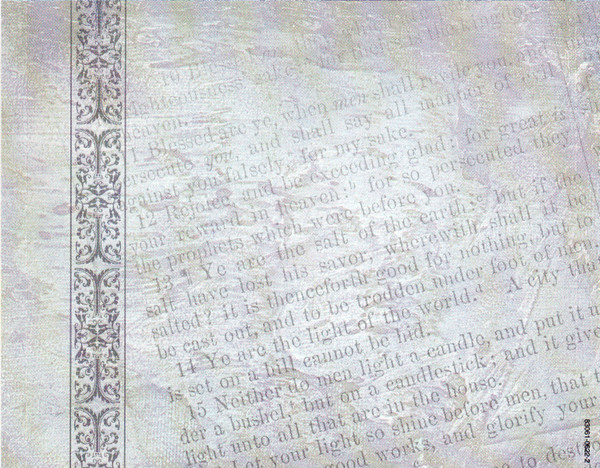 10 Blessed are
righteousness' sake: for theirs is the kingdom
heaven.
11 Blessed are ye, when men shall revile you, and
persecute you, and shall say all manner of evil
against you falsely, for my sake.
12 Rejoice, and be exceeding glad; for great is
your reward in heaven: for so persecuted they
the prophets which were before you.
13 ¶ Ye are the salt of the earth: but if the
salt have lost his savor, wherewith shall it be
salted? it is thenceforth good for nothing, but to
be cast out, and to be trodden under foot of men.
14 Ye are the light of the world. A city tha
is set on a hill cannot be hid.
15 Neither do men light a candle, and put it u
der a bushel; but on a candlestick; and it give
light unto all that are in the house.
Let your light so shine before men, that t
good works, and glorify your
to destro